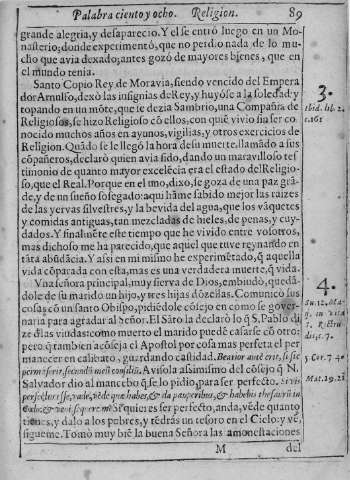 Palabra ciento y ocho. Religion. 89
grande alegria, y desaparecio. Y el se entrò luego en un Mo-
nasterio; donde experimentó, que no perdio nada de lo mu-
cho que avia dexado; antes gozò de mayores bienes, que en
el mundo tenia.
Santo Copio Rey de Moravia, siendo vencido del Empera
dor Arnulfo, dexò las insignias de Rey, y huyóse a la soledad: y
topando en un mõte, que se dezia Sambrio, una Compañia de
Religiosos, se hizo Religioso cõ ellos, con quiẽ vivio sin ser co-
nocido muchos años en ayunos, vigilias, y otros exercicios de
Religion. Quãdo se le llegò la hora de su muerte, llamãdo a sus
cõpañeros, declarò quien avia sido, dando un maravilloso tes-
timonio de quanto mayor excelẽcia era el estado del Religio-
so, que el Real. Porque en el uno, dixo, se goza de una paz grã-
de, y de un sueño sosegado: aqui hãme sabido mejor las raizes
de las yervas silvestres, y la bevida del agua, que los vãquetes
y comidas antiguas, tan mezcladas de hieles, de penas, y cuy-
dados. Y finalmẽte este tiempo que he vivido entre vosotros,
mas dichoso me ha parecido, que aquel que tuve reynando en
tãta abũdãcia. Y assi en mi mismo he experimẽtado, q̃ aquella
vida cõparada con esta, mas es una verdadera muerte, q̃ vida.
Vna señora principal, muy sierva de Dios, embiudò, quedã-
dole de su marido un hijo, y tres hijas dõzellas. Comunicò sus
cosas cõ un santo Obispo, pidiẽdole cõsejo en como se gover-
naria para agradar al Señor. El Sãto la declarò lo q̃ S. Pablo di
ze d las viudas: como muerto el marido puedẽ casarse cõ otro:
pero q̃ tambien acõseja el Apostol por cosa mas perfeta el per
manecer en calibato, guardando castidad. Beatior autẽ erit, si sic
permãserit, secundũ meũ consiliũ. Avisola assimismo del cõsejo q̃ N.
Salvador dio al mancebo q̃ se lo pidio, para ser perfecto. Si vis
perfectus esse, vade, vẽde quæ habes, & da pauperibus, & habebis thesaurũ in
Cælo: & veni, sequere me. Si quieres ser perfecto, anda, vẽde quanto
tienes, y dalo a los pobres, y tẽdràs un tesoro en el Cielo: y vẽ,
sigueme. Tomò muy biẽ la buena Señora las amonestaciones
M del
3.
ibid. lib. 2.
c. 161
4.
in vita
S. Rictru
dis, c. 7.
1. Cor. 7. 40
Mat. 19. 21